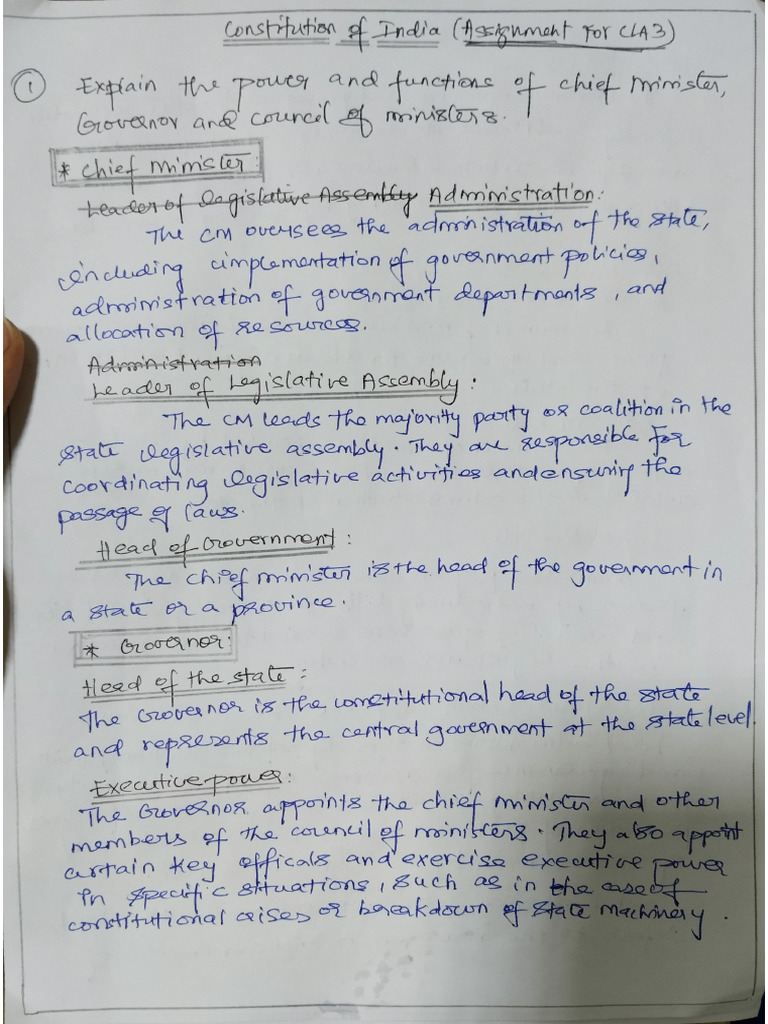 Constitution of India (Assignment for CLA3)
① Explain the power and functions of chief Minister,
Governor and council of ministers.
* Chief minister:
Leader of legislative Assembly Administration:
The CM oversees the administration of the state,
including implementation of government policies,
administration of government departments, and
allocation of resources.
Administration
Leader of Legislative Assembly:
The CM leads the majority party or coalition in the
state legislative assembly. They are responsible for
coordinating legislative activities and ensuring the
passage of laws.
Head of Government:
The chief minister is the head of the government in
a state or a province.
* Governor:
Head of the state:
The Governor is the constitutional head of the state
and represents the central government at the state level.
Executive power:
The Governor appoints the chief minister and other
members of the council of ministers. They also appoint
certain key officals and exercise executive power
in specific situations, such as in the case of
constitutional crises or breakdown of state machinery.